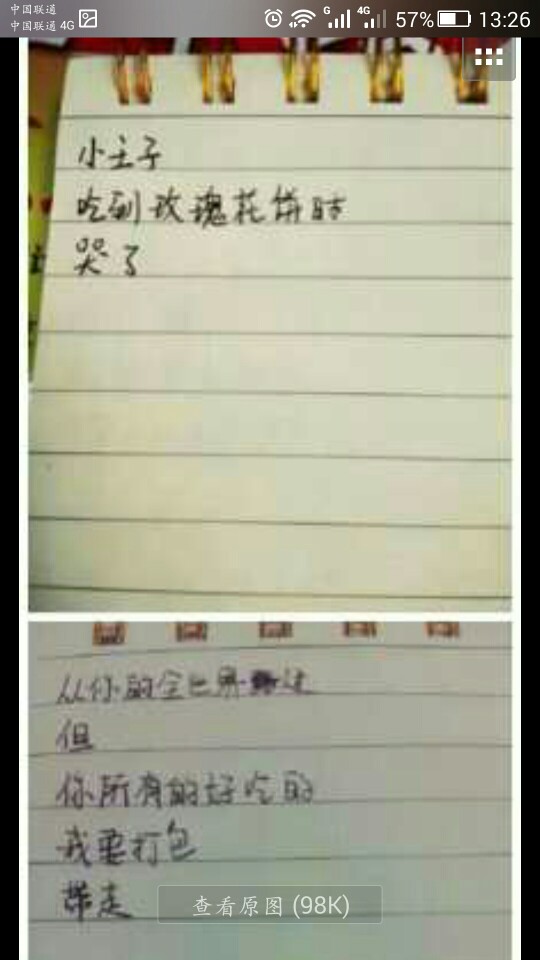 中国联通
中国联通 4G
G
4G
57%
13:26
小主子
吃到玫瑰花饼时
哭了
从你的全世界
但
你所有的好吃的
我要打包
带走
查看原图 (98K)